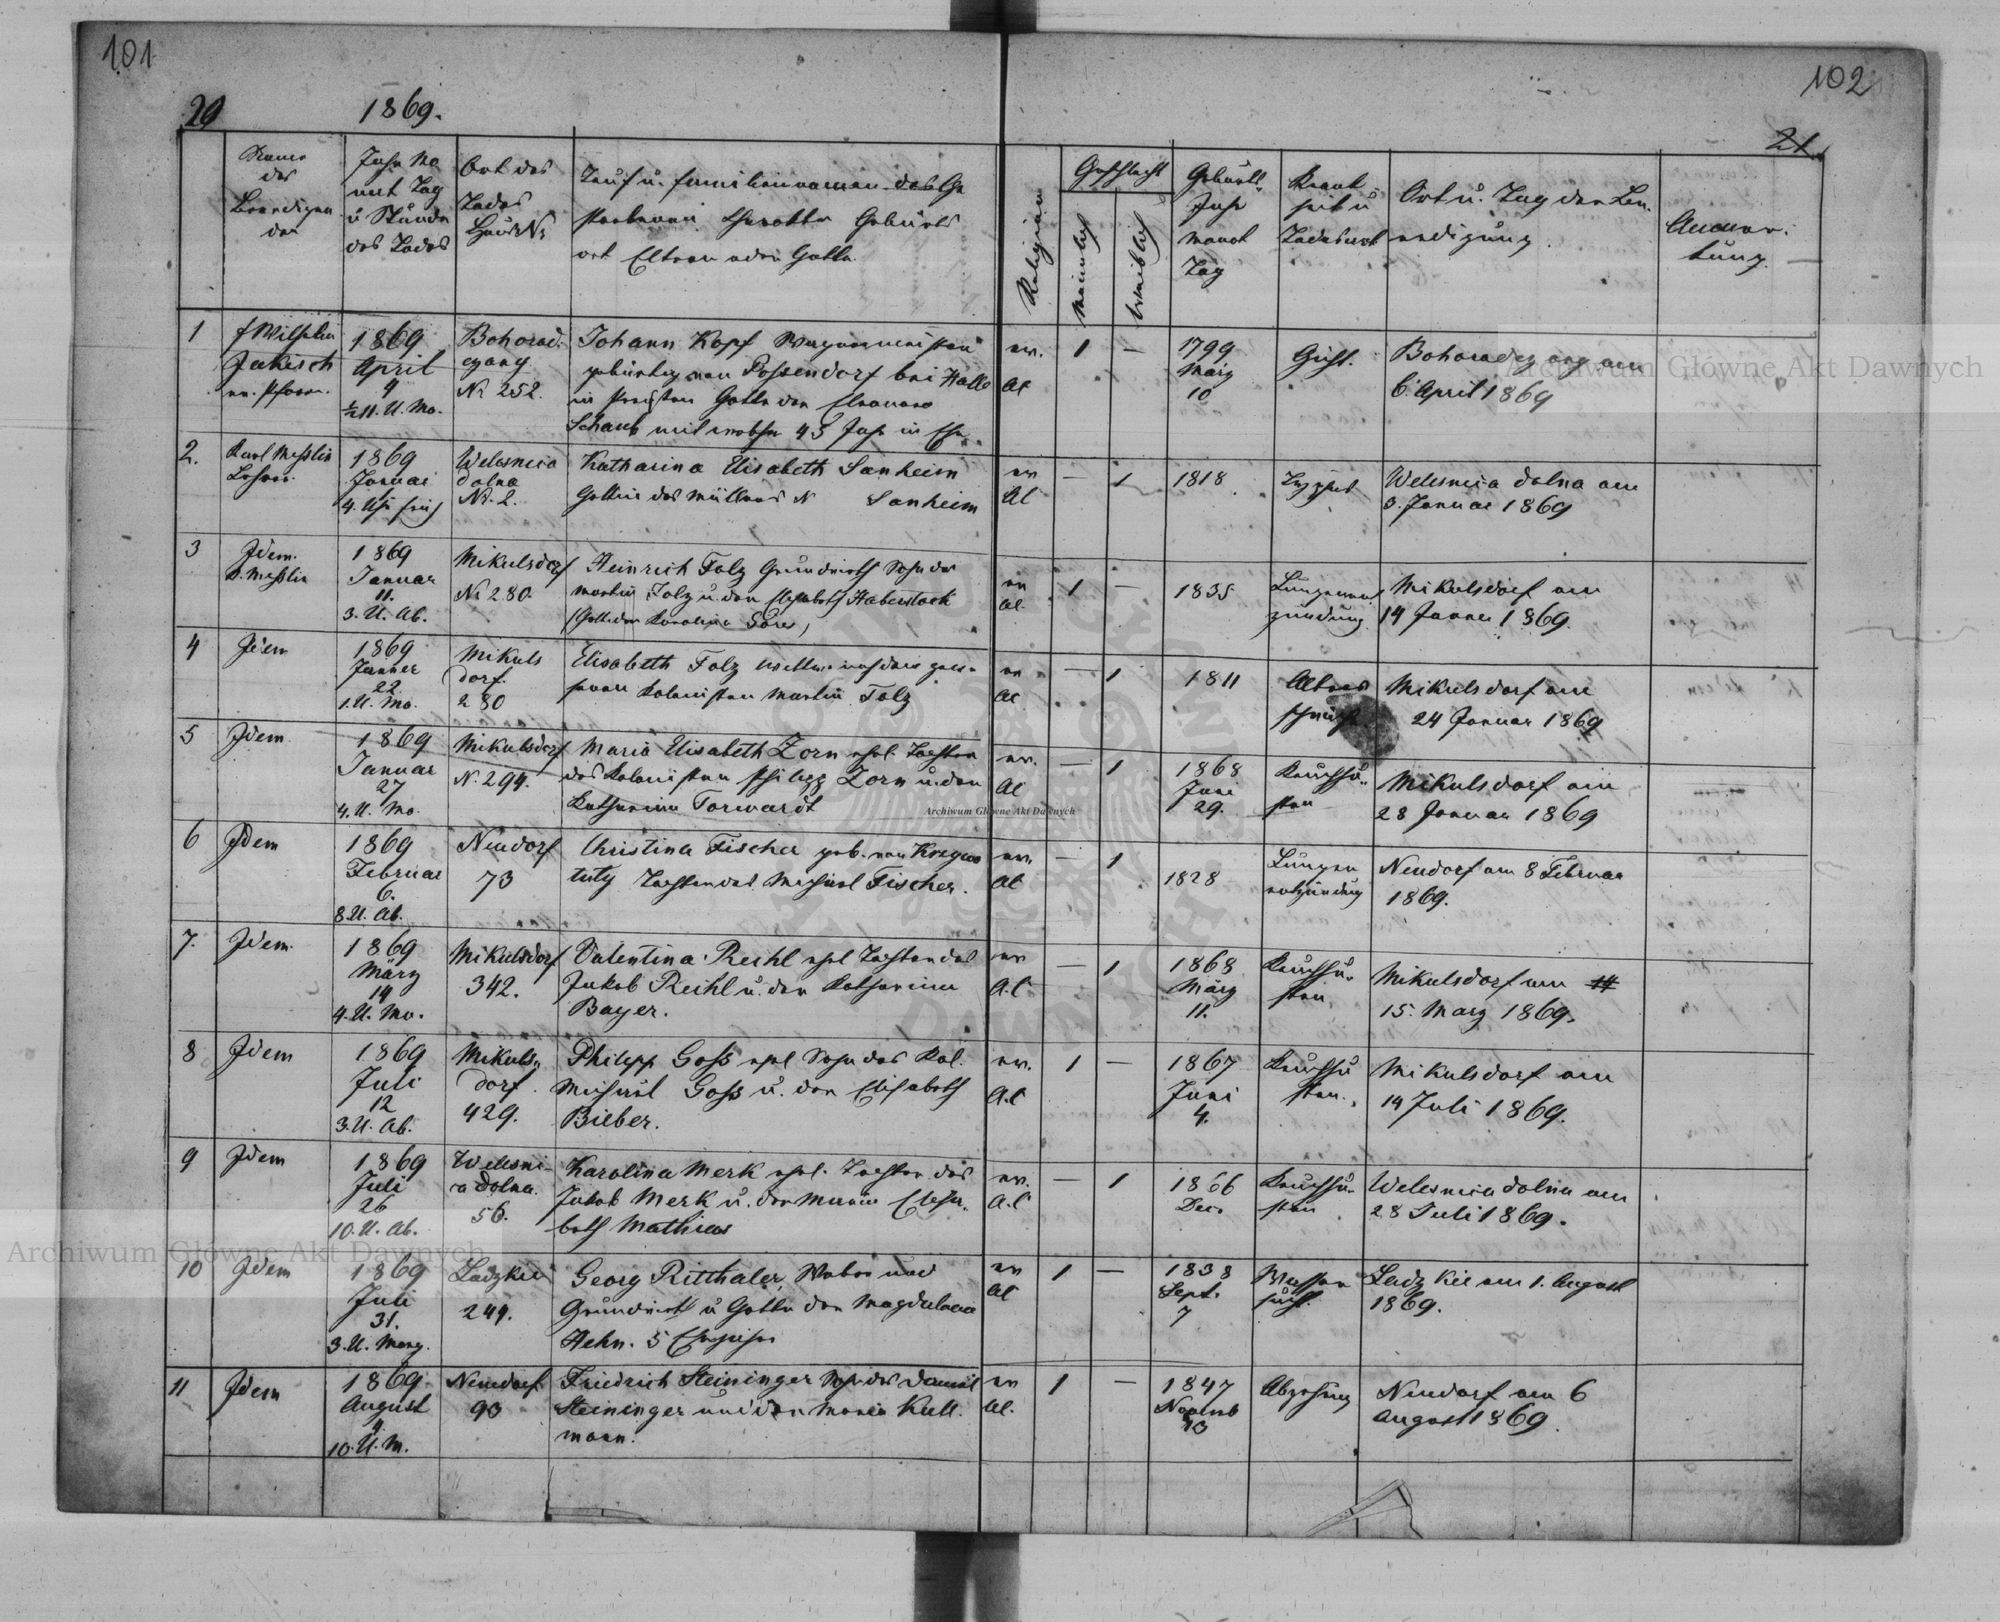 101
102
20
1869.
21
Name
des
Beerdigen
den
Jahr Mo
nat Tag
u Stunde
des Todes
Ort des
Todes
Haus Nr
Tauf u. Familiennamen des Ge
storbenen Charakter Geburts
ort Eltern oder Gatte
Religion
Geschlecht
männlich
weiblich
Geburts
Jahr
Monat
Tag
Krank
heit u
Todesart
Ort u. Tag der Be
erdigung
Anmer
kung.
1
f Wilhelm
Jakisch
ev. Pfarr.
1869
April
4
½ 11. U. Mo.
Bohorod
czany
Nr 252.
Johann Kopf Wagnermeister
gebürtig von Possendorf bei Halle
in Preußen Gatte der Eleonore
Schaub mit welcher 43 Jahr in Ehe
ev.
AC
1 —
1799
März
10
Gicht.
Bohorodczany am
6. April 1869
2.
Karl Meßlin
Lehrer.
1869
Januar
1
4. Uhr früh
Welesnica
dolna
Nr. 2.
Katharina Elisabeth Sanheim
Gattin des Müllers N Sanheim
ev
AC
— 1
1818
Typhus
Welesnica dolna am
3. Januar 1869
3
Idem.
K. Meßlin
1869
Januar
11.
3. U. Ab.
Mikulsdorf
Nr 280.
Heinrich Folz Grundwirth Sohn des
Martin Folz u. der Elisabeth Haberstock
(Gatte der Karolina
ev
AC.
1 —
1835
Lungenent
zündung
Mikulsdorf am
14 Januar 1869.
4
Idem
1869
Januar
22.
1. U. Mo.
Mikuls
dorf.
280
Elisabeth Folz Wittwe nach dem gewe
senen Kolonisten Martin Folz
ev
AC
— 1
1811
Alters
schwäche
Mikulsdorf am
24 Januar 1869
5
Idem.
1869
Januar
27
4. U. Mo.
Mikulsdorf
N. 294.
Maria Elisabeth Zorn ehel Tochter
des Kolonisten Philipp Zorn u. der
Katharina Torwardt
ev.
AC
— 1
1868
Juni
29.
Keuchhu
sten
Mikulsdorf am
28 Januar 1869
6
Idem
1869
Februar
6.
8 U. Ab.
Neudorf
73
Christina Fischer geb. von
Tochter des Michael Fischer.
ev.
AC
— 1
1828
Lungen
entzündung
Neudorf am 8 Februar
1869.
7.
Idem.
1869
März
14
4. U. Mo.
Mikulsdorf
342.
Valentina Reihl ehel Tochter des
Jakob Reihl u. der Katharina
Bayer.
ev
A.C
— 1
1868
März
11.
Keuchhu
sten
Mikulsdorf am 14
15. März 1869.
8
Idem
1869
Juli
12
3. U. Ab.
Mikuls
dorf.
429.
Philipp Goß ehel Sohn des Kol.
Michael Goß u. der Elisabeth
Bieber.
ev.
A.C
1 —
1867
Juni
4.
Keuchhu
sten.
Mikulsdorf am
14 Juli 1869.
9
Idem
1869
Juli
26
10. U. Ab.
Welesni
ca dolna.
56.
Karolina Merk ehel. Tochter des
Jakob Merk u. der Maria Elisa
beth Mathias
ev.
A.C
— 1
1866
Dec.
Keuchhu
sten
Welesnica dolna am
28 Juli 1869.
10
Idem
1869
Juli
31.
3. U. Morg.
Ladzkie
249.
Georg Ritthaler, Weber und
Grundwirth u Gatte der Magdalena
Hehn. 5
ev
AC
1 —
1838
Sept.
7
Wasser
sucht.
Ladzkie am 1. August
1869.
11
Idem
1869
August
4
10. U. M.
Neudorf
93
Friedrich Steininger Sohn des Daniel
Steininger und der Maria Kull
mann.
ev
AC.
1 —
1847
Novemb
13
Abzehrung
Neudorf am 6
August 1869.
Archiwum Główne Akt Dawnych
Archiwum Główne Akt Dawnych
Archiwum Główne Akt Dawnych